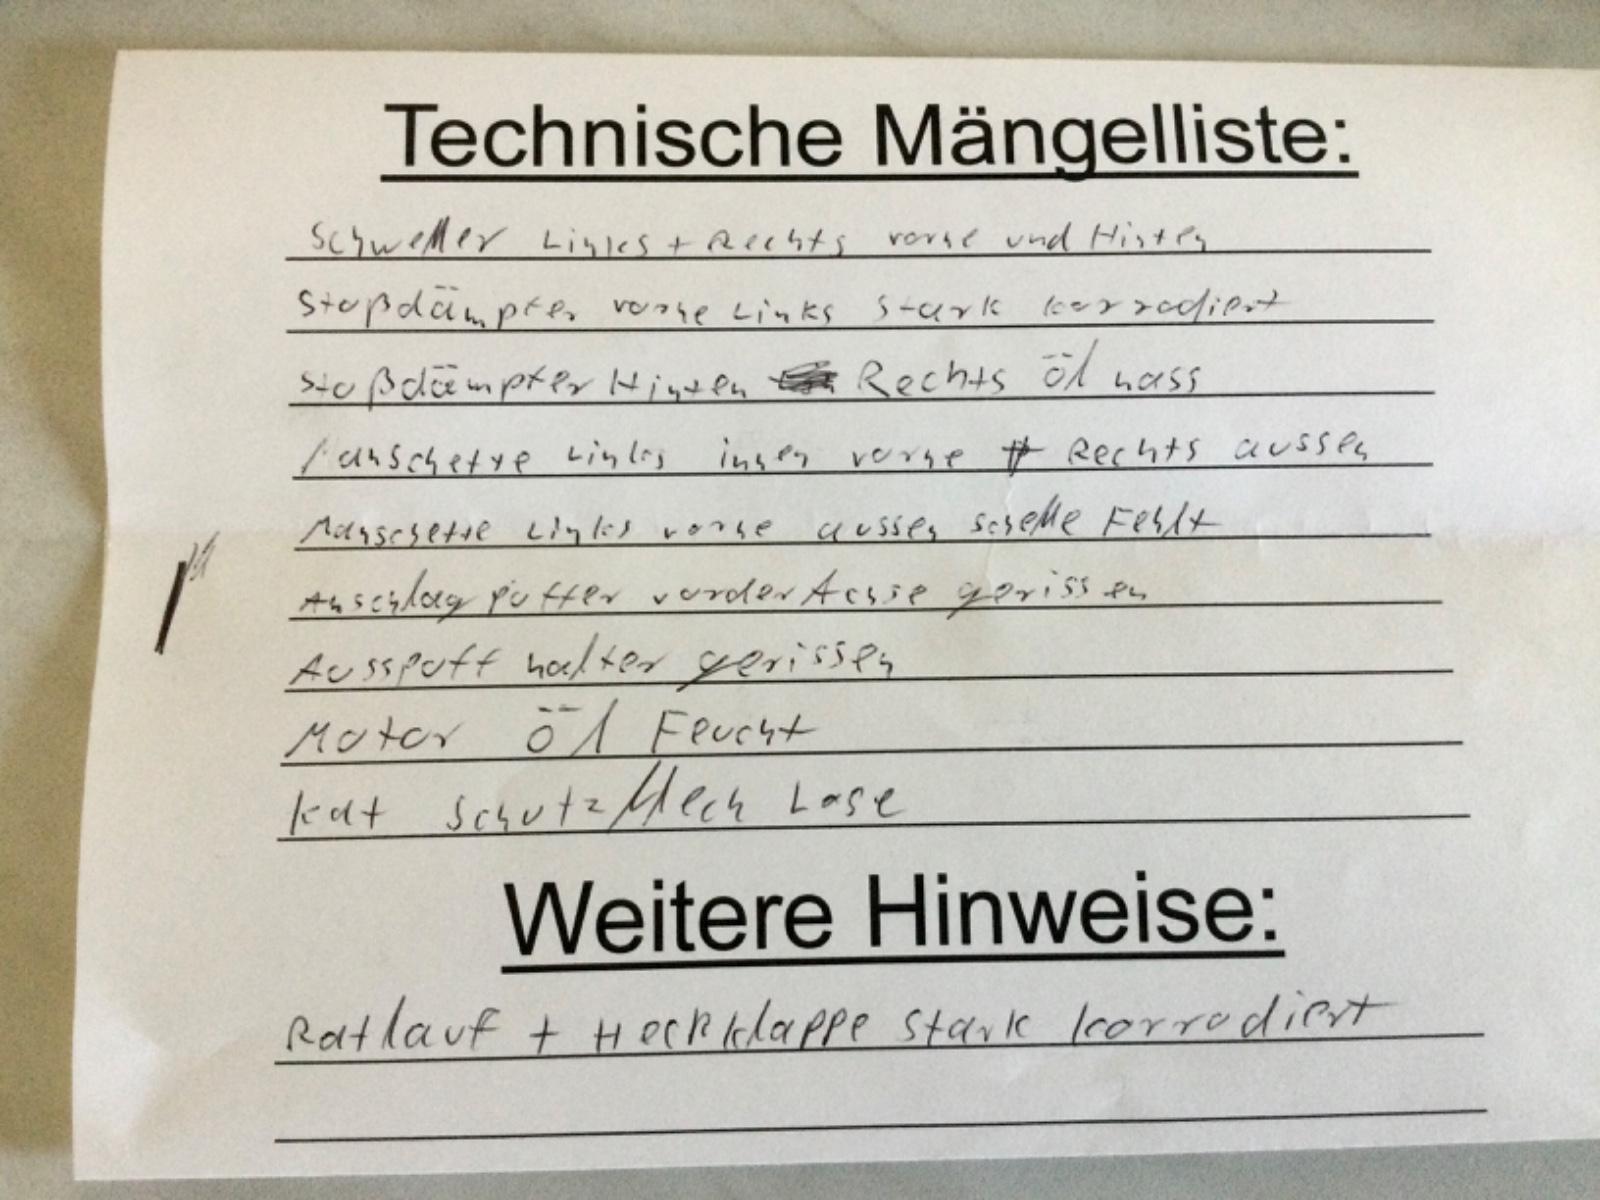 Technische Mängelliste:
Schweller Links + Rechts vorne und Hinten
Stoßdämpfer vorne Links Stark korrodiert
Stoßdämpfer Hinten Rechts öl nass
Manschette Links innen vorne + Rechts aussen
Manschette Links vorne aussen schelle Fehlt
Anschlag puffer vorder Achse gerissen
Ausspuff halter gerissen
Motor öl Feucht
Kat Schutzblech Lose
Weitere Hinweise:
Ratlauf + Heckklappe Stark korrodiert